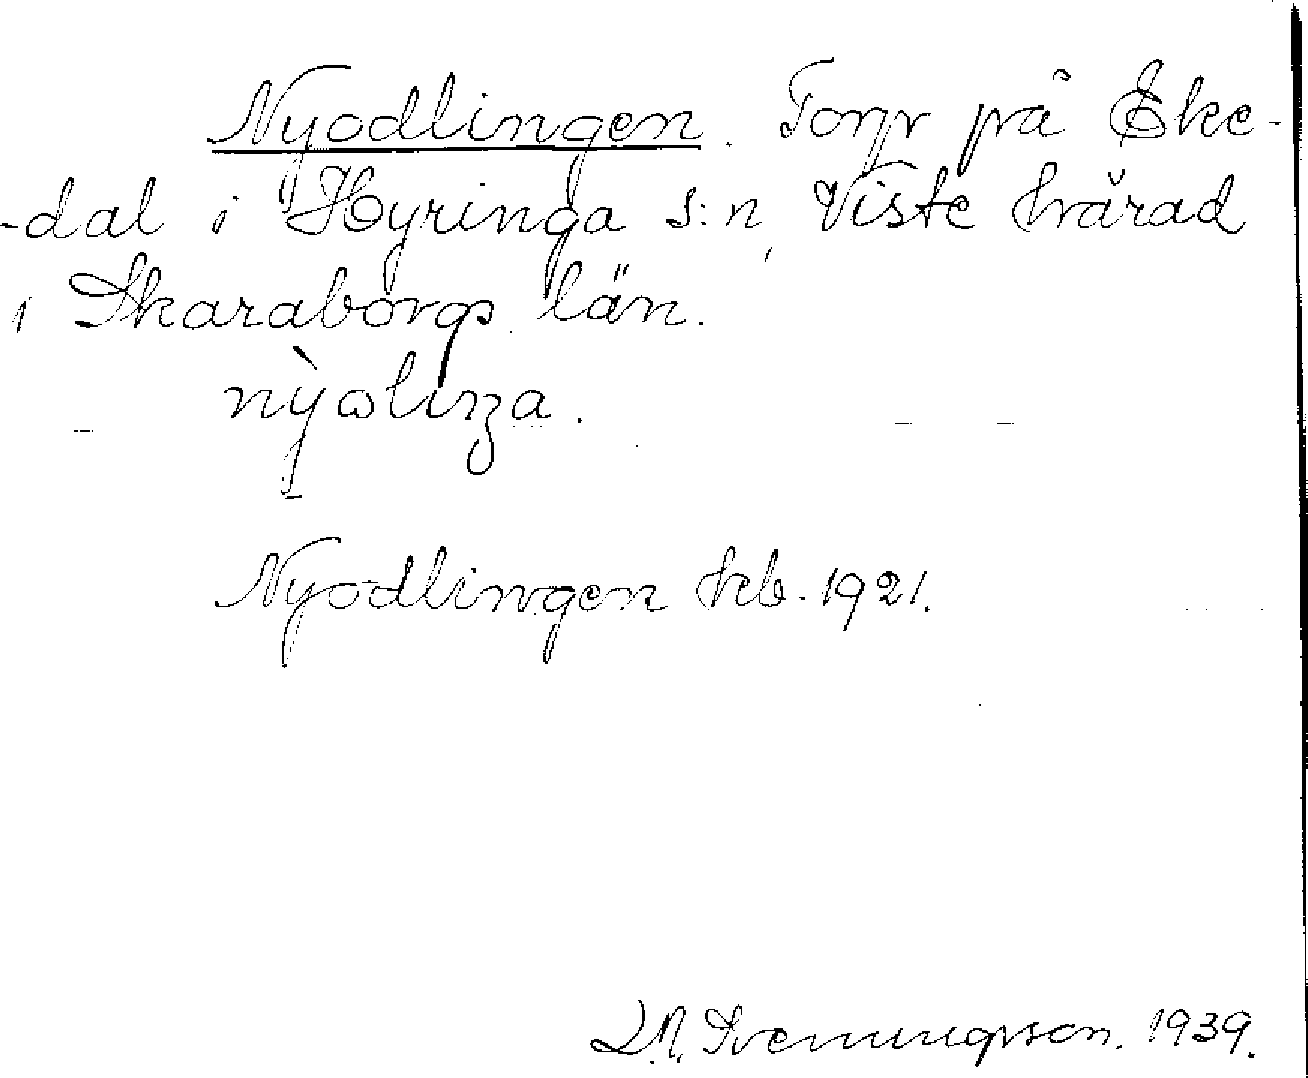 Nyodlingen. Torp på Eke-
-dal i Hyringa s:n, Viste härad
i Skaraborgs län.
Nyodlingen hfb. 1921.
Svenungsson. 1939.